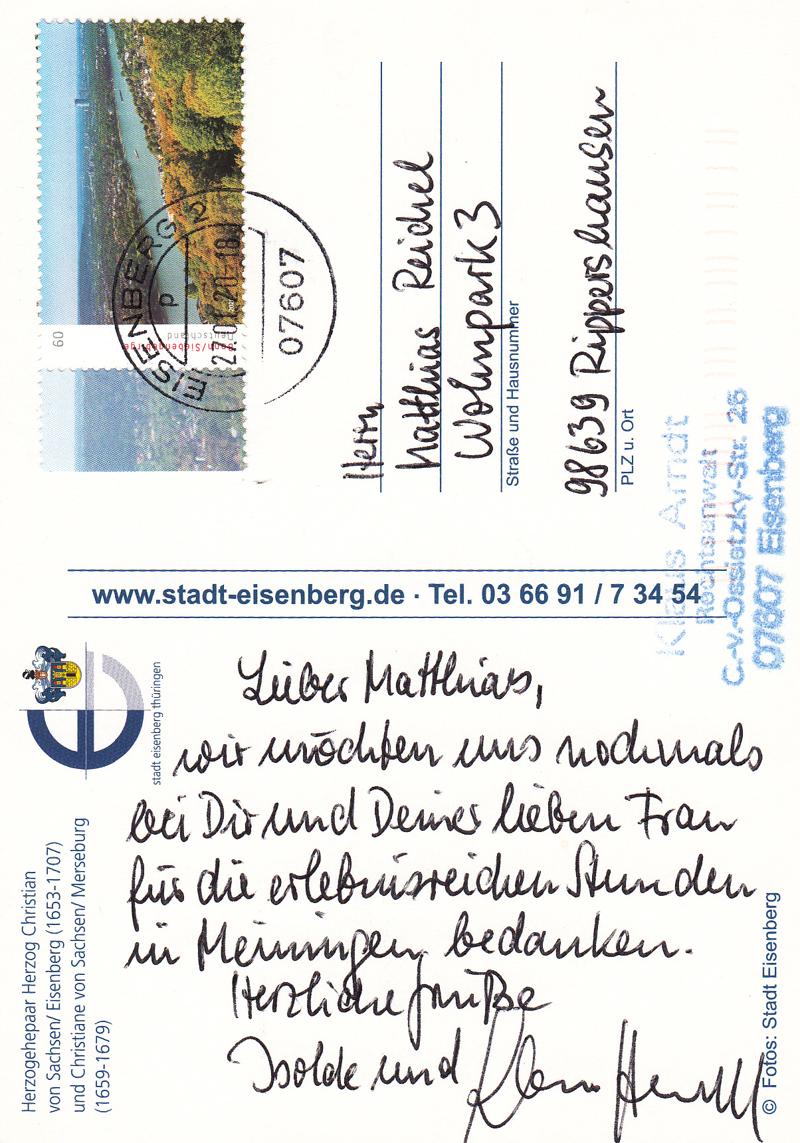 60
Bonn/Siebengebirge
Deutschland
EISENBERG
07607
Herrn
Matthias Reichel
Wohnpark 3
Straße und Hausnummer
98639 Rippershausen
PLZ u. Ort
Klaus Arndt
Rechtsanwalt
C.-v.-Ossietzky-Str. 26
07607 Eisenberg
www.stadt-eisenberg.de · Tel. 03 66 91 / 7 34 54
stadt eisenberg thüringen
Lieber Matthias,
wir möchten uns nochmals
bei Dir und Deiner lieben Frau
für die erlebnisreichen Stunden
in Meiningen bedanken.
Herzliche Grüße
Isolde und Klaus Arndt
Herzogehepaar Herzog Christian
von Sachsen/ Eisenberg (1653-1707)
und Christiane von Sachsen/ Merseburg
(1659-1679)
© Fotos: Stadt Eisenberg